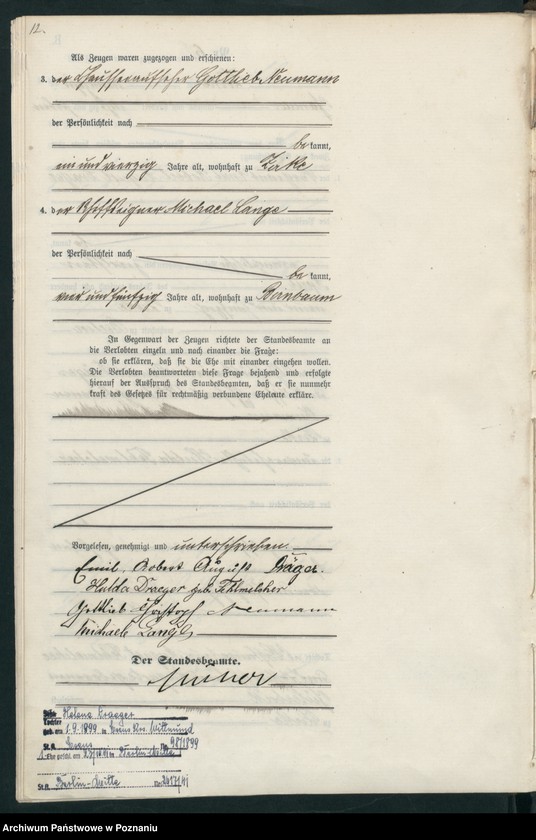 12.
Als Zeugen waren zugezogen und erschienen:
3. der Chausseeaufseher Gottlieb Neumann
der Persönlichkeit nach
be kannt,
ein und vierzig Jahre alt, wohnhaft zu Zirke
4. der Schiffseigner Michael Lange
der Persönlichkeit nach
be kannt,
vier und fünfzig Jahre alt, wohnhaft zu Birnbaum
In Gegenwart der Zeugen richtete der Standesbeamte an
die Verlobten einzeln und nach einander die Frage:
ob sie erklären, daß sie die Ehe mit einander eingehen wollen.
Die Verlobten beantworteten diese Frage bejahend und erfolgte
hierauf der Ausspruch des Standesbeamten, daß er sie nunmehr
kraft des Gesetzes für rechtmäßig verbundene Eheleute erkläre.
Vorgelesen, genehmigt und unterschrieben.
Emil Robert August Dräger.
Hulda Draeger geb. Fehlmelcher
Gottlieb Christoph Neumann
Michael Lange
Der Standesbeamte.
Tochter Helena Draeger
geb. am 1.9.1899 in Kreis Wittmund
St.A. Nr. 98/1899
1. Ehe geschl. am in Berlin-Mitte
St.A. Berlin-Mitte Nr.
Archiwum Państwowe w Poznaniu